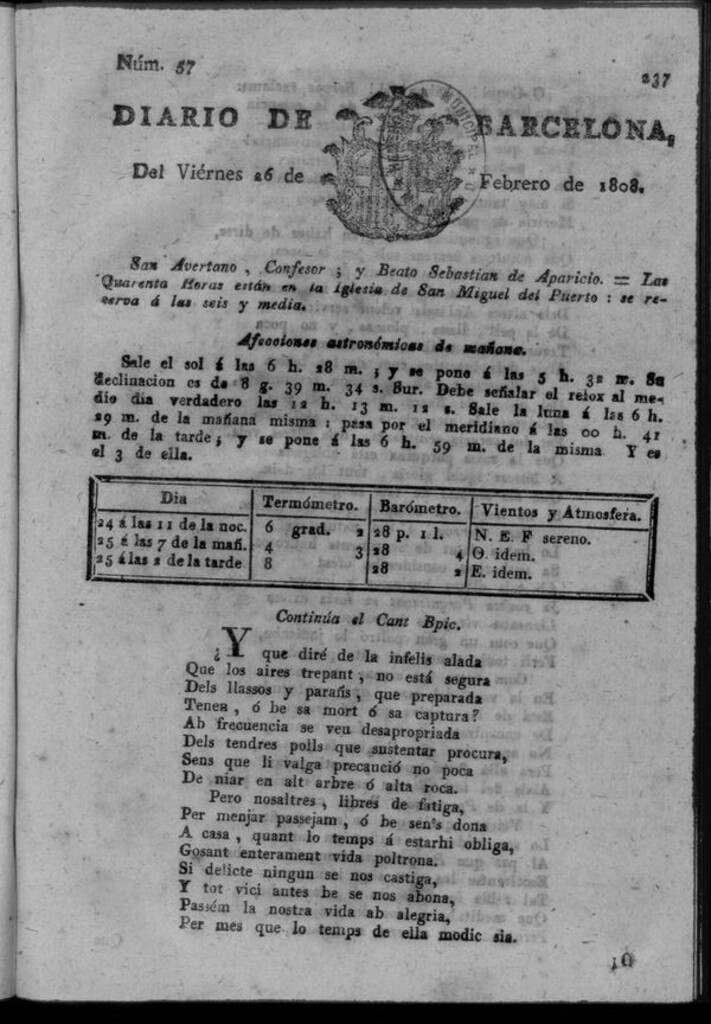 Núm. 57
237
DIARIO DE BARCELONA,
Del Viérnes 26 de Febrero de 1808.
San Avertano, Confesor; y Beato Sebastian de Aparicio. = Las
Quarenta Horas están en la Iglesia de San Miguel del Puerto: se re-
serva á las seis y media.
Afecciones astronómicas de mañana.
Sale el sol á las 6 h. 28 m.; y se pone á las 5 h. 32 m. Su
declinacion es de 8 g. 39 m. 34 s. Sur. Debe señalar el relox al me-
dio dia verdadero las 12 h. 13 m. 12 s. Sale la luna á las 6 h.
29 m. de la mañana misma: pasa por el meridiano á las 00 h. 41
m. de la tarde; y se pone á las 6 h. 59 m. de la misma Y es
el 3 de ella.
Dia Termómetro. Barómetro. Vientos y Atmosfera.
24 á las 11 de la noc. 6 grad. 2 28 p. 1 l. N. E. F sereno.
25 á las 7 de la mañ. 4 3 28 4 O. idem.
25 á las 2 de la tarde 8 28 2 E. idem.
Continúa el Cant Epic.
¿Y que diré de la infelis alada
Que los aires trepant, no está segura
Dels llassos y parañs, que preparada
Tenen, ó be sa mort ó sa captura?
Ab frecuencia se veu desapropriada
Dels tendres polls que sustentar procura,
Sens que li valga precaució no poca
De niar en alt arbre ó alta roca.
Pero nosaltres, libres de fatiga,
Per menjar passejam, ó be sen's dona
A casa, quant lo temps á estarhi obliga,
Gosant enterament vida poltrona.
Si delicte ningun se nos castiga,
Y tot vici antes be se nos abona,
Passém la nostra vida ab alegria,
Per mes que lo temps de ella modic sia.